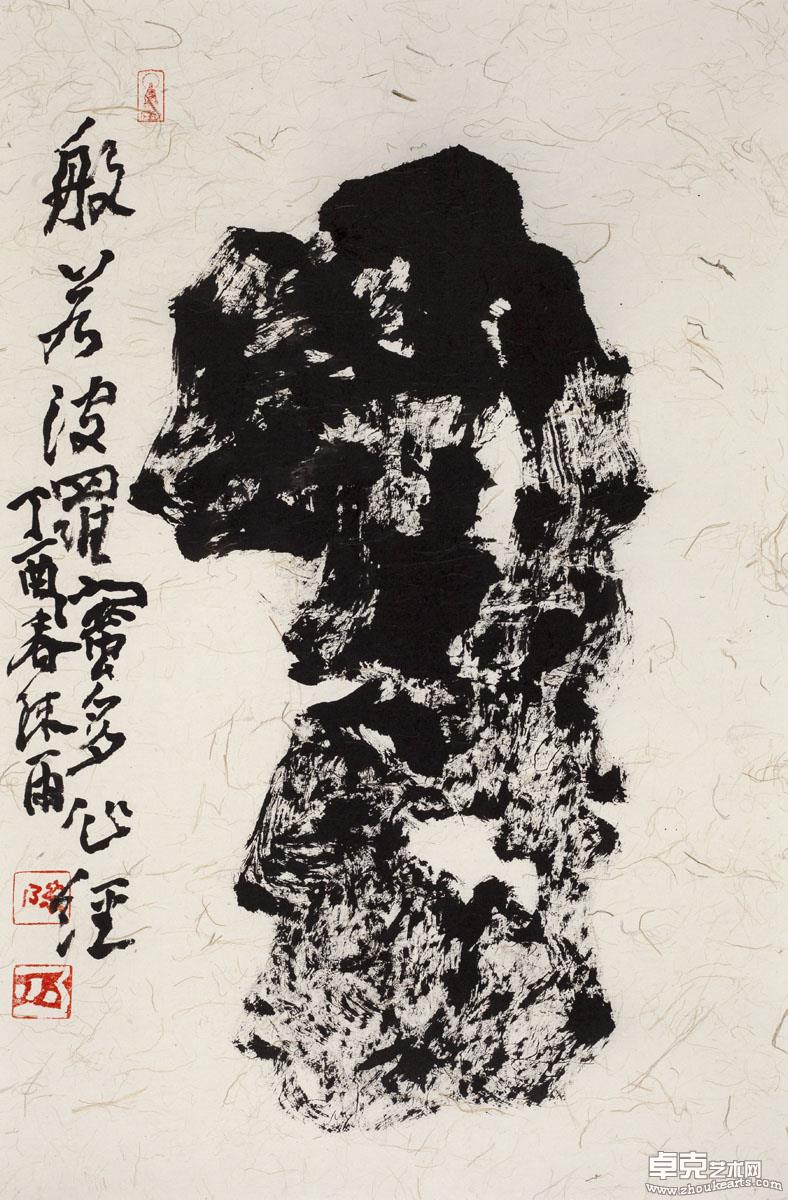 般若波羅蜜多心經
丁酉春陈雨
卓克艺术网
www.zhoukearts.com